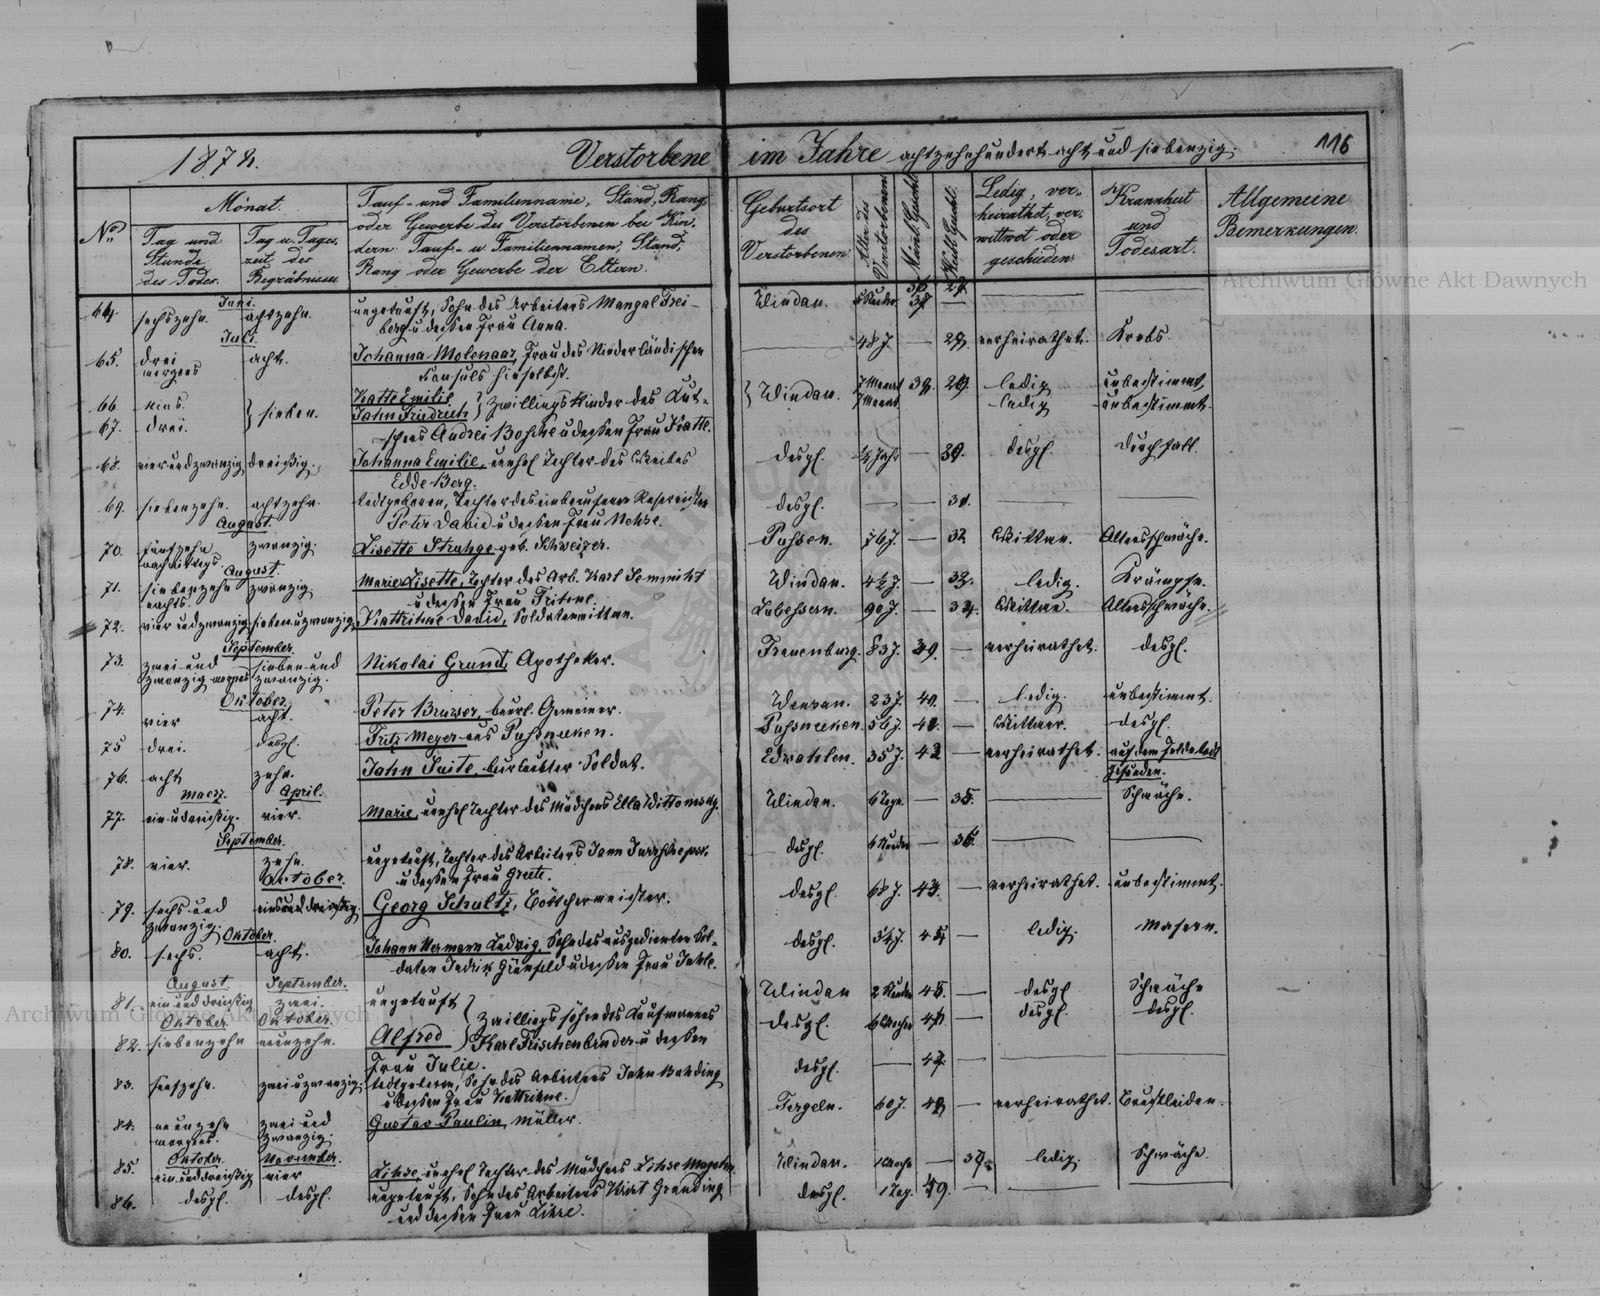 1878.
Verstorbene im Jahre achtzehnhundert acht und siebenzig.
116
No.
Monat.
Tag und Stunde des Todes.
Tag u. Tageszeit des Begräbnisses
Tauf- und Familienname, Stand, Rang,
oder Gewerbe des Verstorbenen bei Kin-
dern: Tauf- u. Familiennamen, Stand,
Rang oder Gewerbe der Eltern.
Geburtsort
des
Verstorbenen.
Alter des Verstorbenen
Männl. Geschl.
Weibl. Geschl.
Ledig, ver-
heirathet, ver-
wittwet oder
geschieden.
Krankheit
und
Todesart.
Allgemeine
Bemerkungen.
Juni.
64. sechszehn. achtzehn. ungetauft, Sohn des Arbeiters Mangal Frei- Windau. 37
berg u dessen Frau Anna.
Juli.
65. drei morgens acht. Johanna Molenaar, Frau des Niederländischen 48 J. — 28. verheirathet. Krebs.
Konsuls hieselbst.
66 eins. Katte Emilie } Zwillingskinder des Kut- Windau. 7 Monat 29. ledig unbestimmt,
67. drei. } sieben. Jahn Friedrich 7 Monat 38. ledig unbestimmt.
schers Andrei Boschke u dessen Frau Katte.
68. vier und zwanzig dreißig. Johanna Emilie, unehel Tochter des Weibes desgl. ½ Jahr — 30. desgl. Durchfall.
Edde Berg.
69. siebenzehn. achtzehn. todtgeboren, Tochter des einberufenen Reservisten desgl. — — 31.
Peter David u dessen Frau
August.
70. fünfzehn nachmittags zwanzig. Lisette Struhge geb. Schweizer. Puhsen. 76 J. — 32 Wittwe. Altersschwäche.
August.
71. siebenzehn nachts. zwanzig Marie Lisette, Tochter des Arb. Karl Semmikt Windau. 4½ J. — 33. ledig. Krämpfe.
u dessen Frau
72. vier und zwanzig sieben u zwanzig Kattrihne David, Soldatenwittwe. 90 J. — 34. Wittwe. Altersschwäche.
September.
73. zwei und zwanzig morgens sieben und zwanzig. Nikolai Grund, Apotheker. Frauenburg. 83 J. 39. — verheirathet. desgl.
Oktober.
74. vier acht. Peter Bruwer, beurl. Gemeiner. Windau. 23 J. 40. — ledig. unbestimmt.
75 drei. desgl. Fritz Meyer aus Puhsneeken. Puhsneeken. 56 J. 41. — Wittwer. desgl.
76. acht zehn. Jahn Suite, beurlaubter Soldat. Edwahlen. 35 J. 42 — verheirathet. auf dem Felde todt
gefunden.
Maerz. April.
77. ein u dreißig. vier. Marie, unehel Tochter des Mädchens Ella Wittomsky. Windau. 6 Tage. — 35. Schwäche.
September.
78. vier. zehn. ungetauft, Tochter des Arbeiters Jann desgl. 6 Stunden — 36.
u dessen Frau Greete.
Oktober.
79. sechs und zwanzig. eins und dreißig. Georg Schultz, Böttchermeister. desgl. 68 J. 43. — verheirathet. unbestimmt.
Oktober.
80. sechs. acht. Johann Hermann Ludwig, Sohn des ausgedienten Sol- desgl. 3¼ J. 44. — ledig. Masern.
daten Indrik Grünfeld u dessen Frau Jahle.
August September.
81. ein und dreißig zwei. ungetauft } Zwillingssöhne des Kaufmannes Windau 2 Stunden 45. — desgl Schwäche
Oktober. Oktober.
82. siebenzehn neunzehn. Alfred } Karl Frischenbruder u dessen desgl. 6 Wochen 46. — desgl. desgl.
Frau Julie.
83. fünfzehn. zwei u zwanzig. todtgeboren, Sohn des Arbeiters Jahn Bahding desgl. — 47. —
u dessen Frau Kattrihne.
84. neunzehn morgens. zwei und zwanzig. Gustav Paulin, Müller. Tergeln. 60 J. 48 — verheirathet. Brustleiden.
Oktober. November.
85. ein und dreißig vier Lihse, unehel Tochter des Mädchens Lihse Windau. 1 Woche — 37. ledig. Schwäche
86. desgl. desgl. ungetauft, Sohn des Arbeiters Kist Granding desgl. 1 Tag. 49. —
und dessen Frau Lihse.
Archiwum Główne Akt Dawnych
Archiwum Główne Akt Dawnych